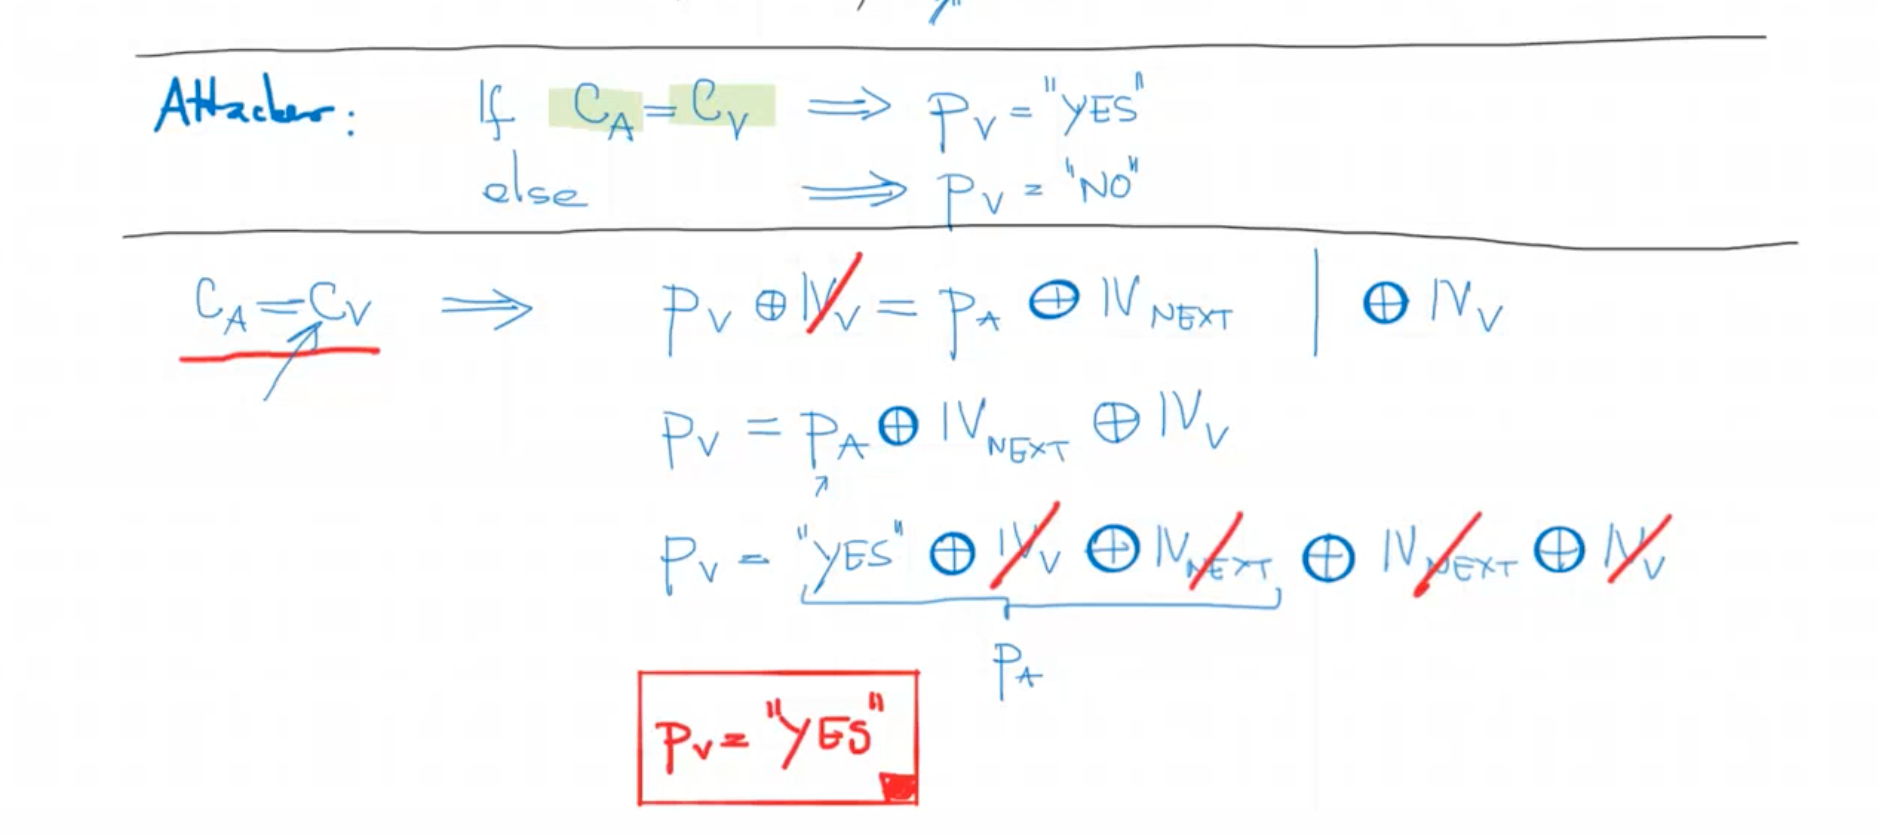 Attacker: If C_A = C_V ⟹ P_V = "YES"
else ⟹ P_V = "NO"
C_A = C_V ⟹ P_V ⊕ IV_V = P_A ⊕ IV_NEXT | ⊕ IV_V
P_V = P_A ⊕ IV_NEXT ⊕ IV_V
P_V = "YES" ⊕ IV_V ⊕ IV_NEXT ⊕ IV_NEXT ⊕ IV_V
P_A
P_V = "YES"